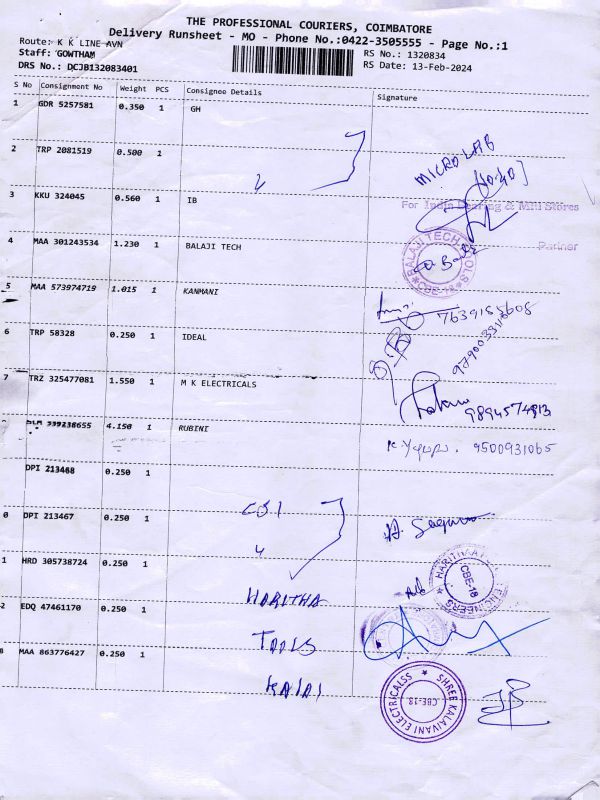 THE PROFESSIONAL COURIERS, COIMBATORE
Delivery Runsheet - MO - Phone No.:0422-3505555 - Page No.:1
Route: K K LINE AVN
RS No.: 1320834
Staff: GOWTHAM
RS Date: 13-Feb-2024
DRS No.: DCJB132083401
S No Consignment No Weight PCS Consignee Details Signature
1 GDR 5257581 0.350 1 GH
2 TRP 2081519 0.500 1
MICRO LAB
3 KKU 324045 0.560 1 IB
For India Bearing & Mill Stores
Partner
4 MAA 301243534 1.230 1 BALAJI TECH
BALAJI TECH TOOLS
5 MAA 573974719 1.015 1 KANMANI
7639153608
6 TRP 58328 0.250 1 IDEAL
7 TRZ 325477081 1.550 1 M K ELECTRICALS
9894574813
4.150 1 RUBINI
9500931065
DPI 213468 0.250 1
0 DPI 213467 0.250 1
1 HRD 305738724 0.250 1 HARITHA
ENGINEERS
CBE-18
2 EDQ 47461170 0.250 1 TOOLS
MAA 863776427 0.250 1 KALAI
SHREE KALAIVANI ELECTRICALSS
CBE-18